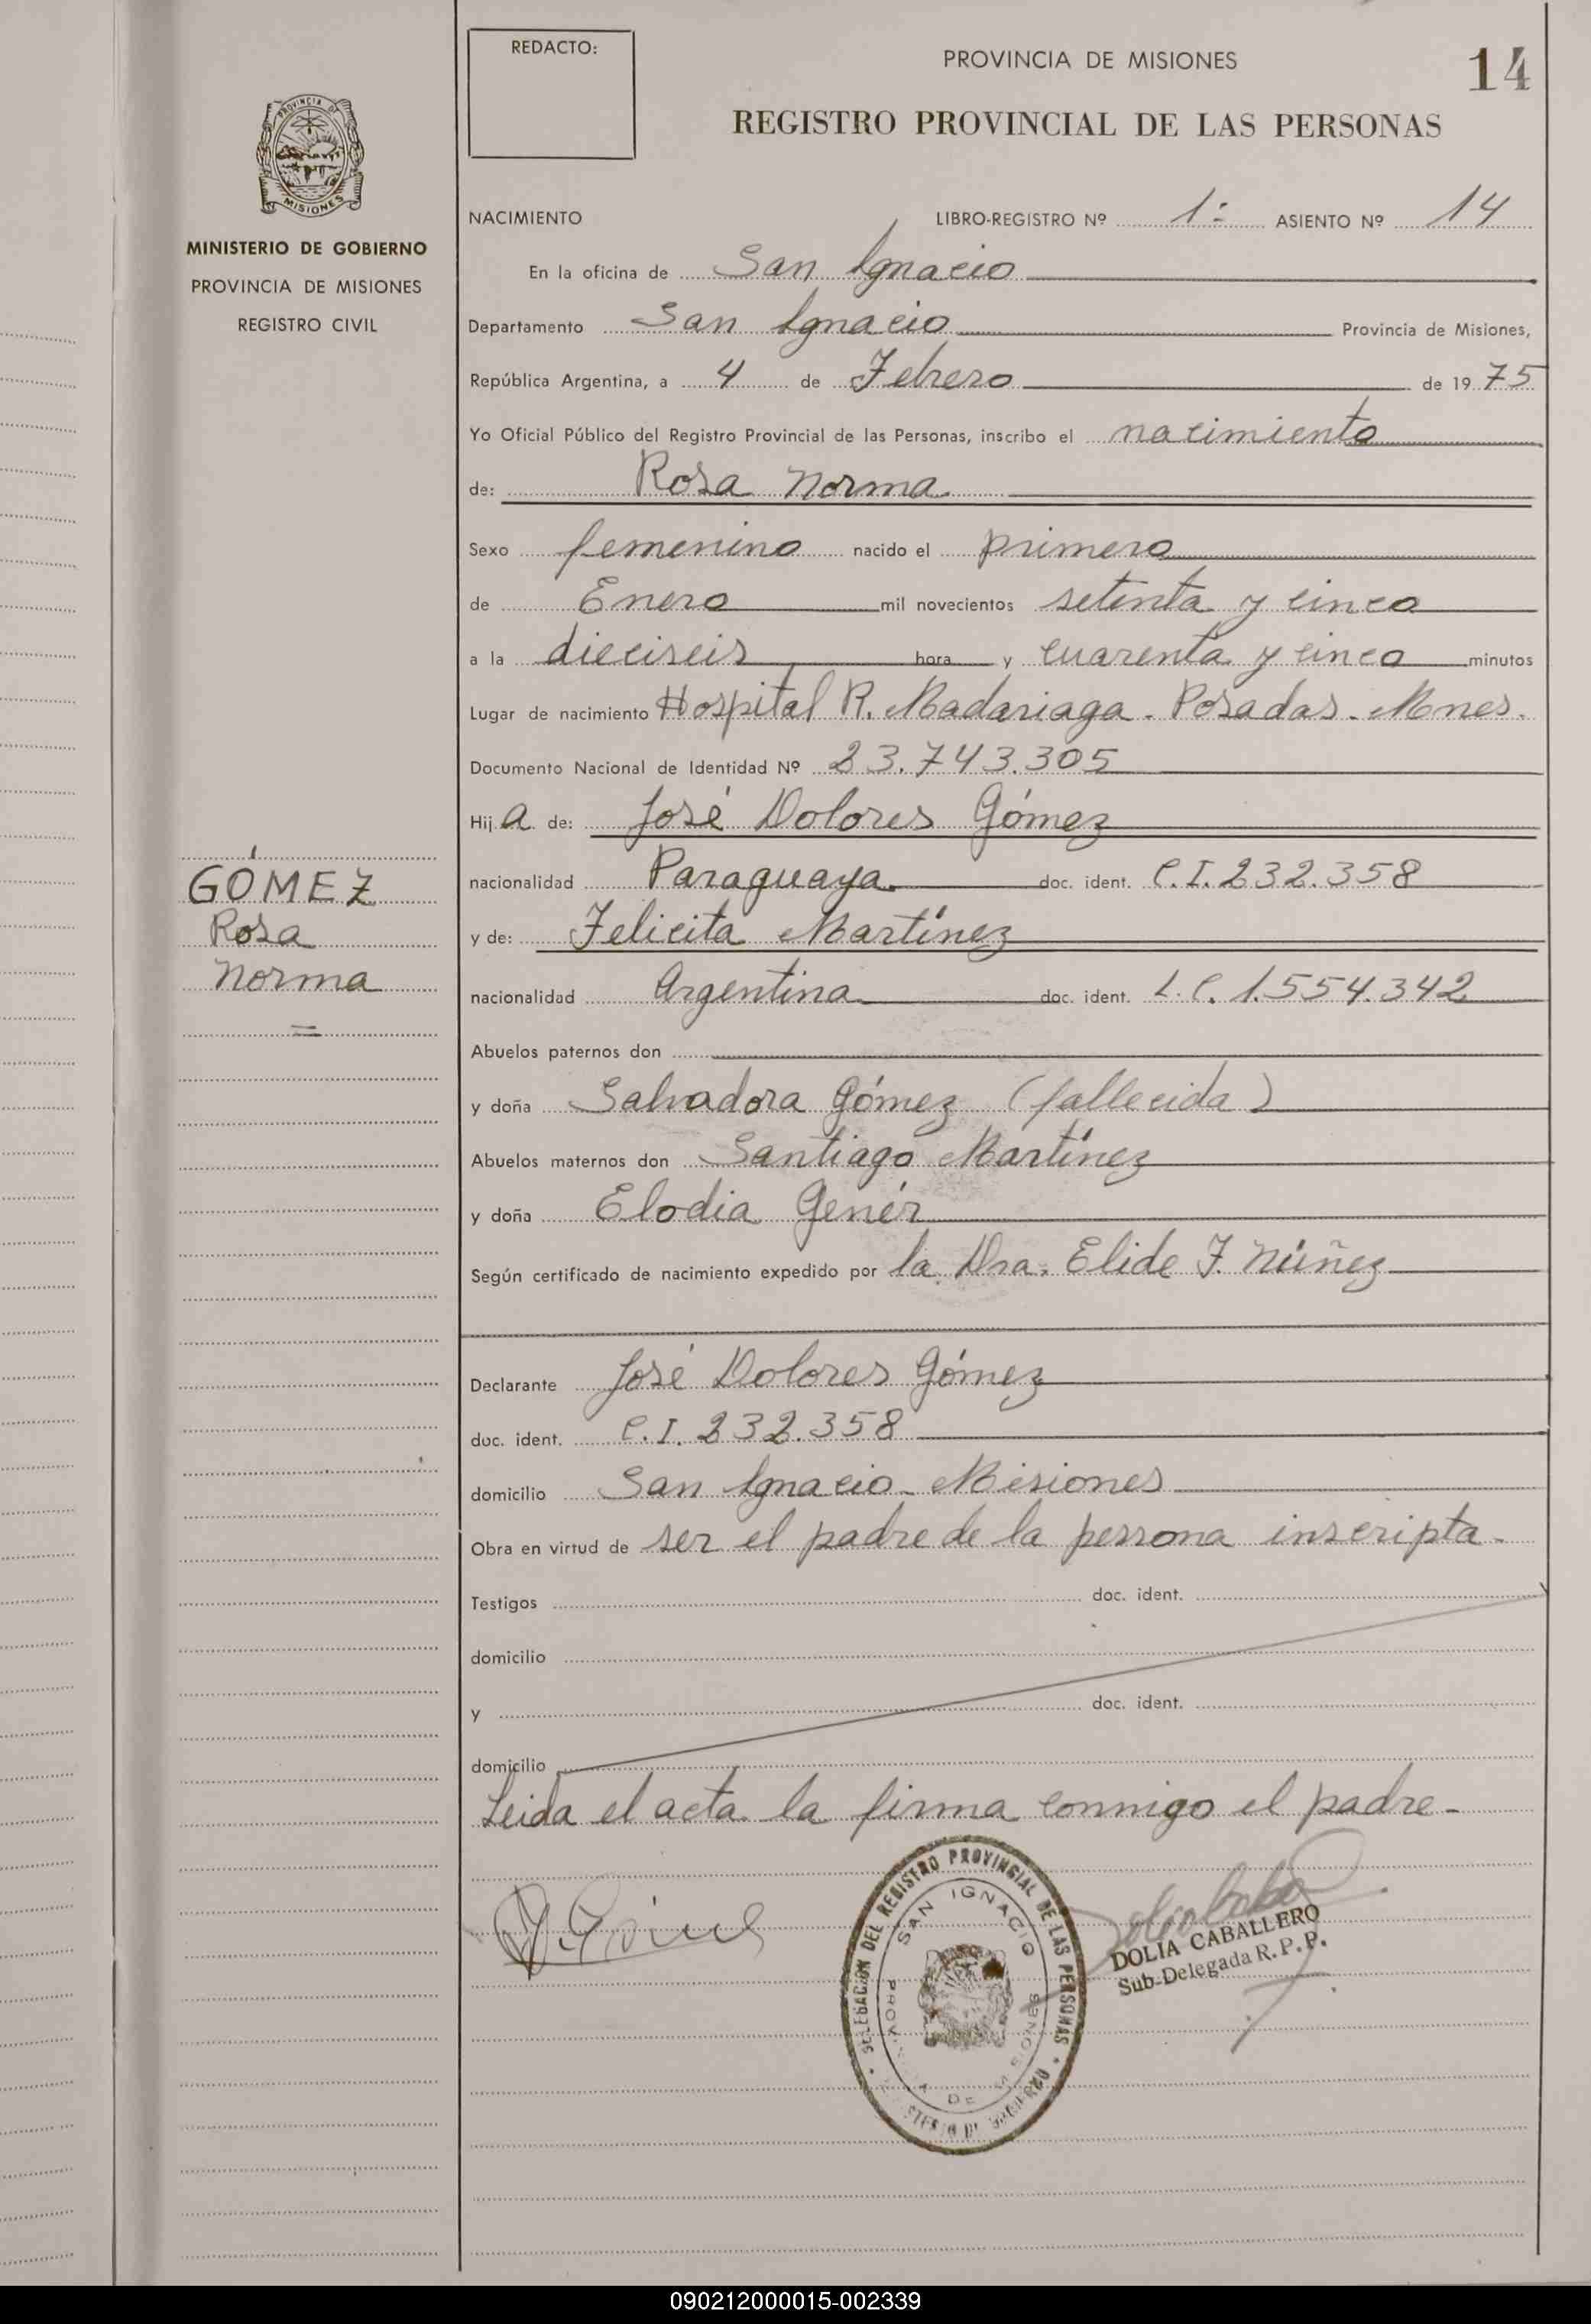 REDACTO:
PROVINCIA DE MISIONES
14
REGISTRO PROVINCIAL DE LAS PERSONAS
PROVINCIA DE
MISIONES
MINISTERIO DE GOBIERNO
PROVINCIA DE MISIONES
REGISTRO CIVIL
GÓMEZ
Rosa
Norma
=
NACIMIENTO LIBRO-REGISTRO Nº 1º ASIENTO Nº 14
En la oficina de San Ignacio
Departamento San Ignacio Provincia de Misiones,
República Argentina, a 4 de Febrero de 1975
Yo Oficial Público del Registro Provincial de las Personas, inscribo el nacimiento
de: Rosa Norma
Sexo femenino nacido el primero
de Enero mil novecientos setenta y cinco
a la dieciseis hora y cuarenta y cinco minutos
Lugar de nacimiento Hospital R. Madariaga - Posadas - Mnes.
Documento Nacional de Identidad Nº 23.743.305
Hija de: José Dolores Gómez
nacionalidad Paraguaya doc. ident. C.I. 232.358
y de: Felicita Martínez
nacionalidad Argentina doc. ident. L.C. 1.554.342
Abuelos paternos don
y doña Salvadora Gómez (fallecida)
Abuelos maternos don Santiago Martínez
y doña Elodia Genér
Según certificado de nacimiento expedido por la Dra. Elide F. Núñez
Declarante José Dolores Gómez
doc. ident. C.I. 232.358
domicilio San Ignacio - Misiones
Obra en virtud de ser el padre de la persona inscripta -
Testigos doc. ident.
domicilio
y doc. ident.
domicilio
Leida el acta la firma conmigo el padre -
DELEGACIÓN DEL REGISTRO PROVINCIAL DE LAS PERSONAS
SAN IGNACIO
PROVINCIA DE MISIONES
DOLIA CABALLERO
Sub-Delegada R.P.P.
090212000015-002339